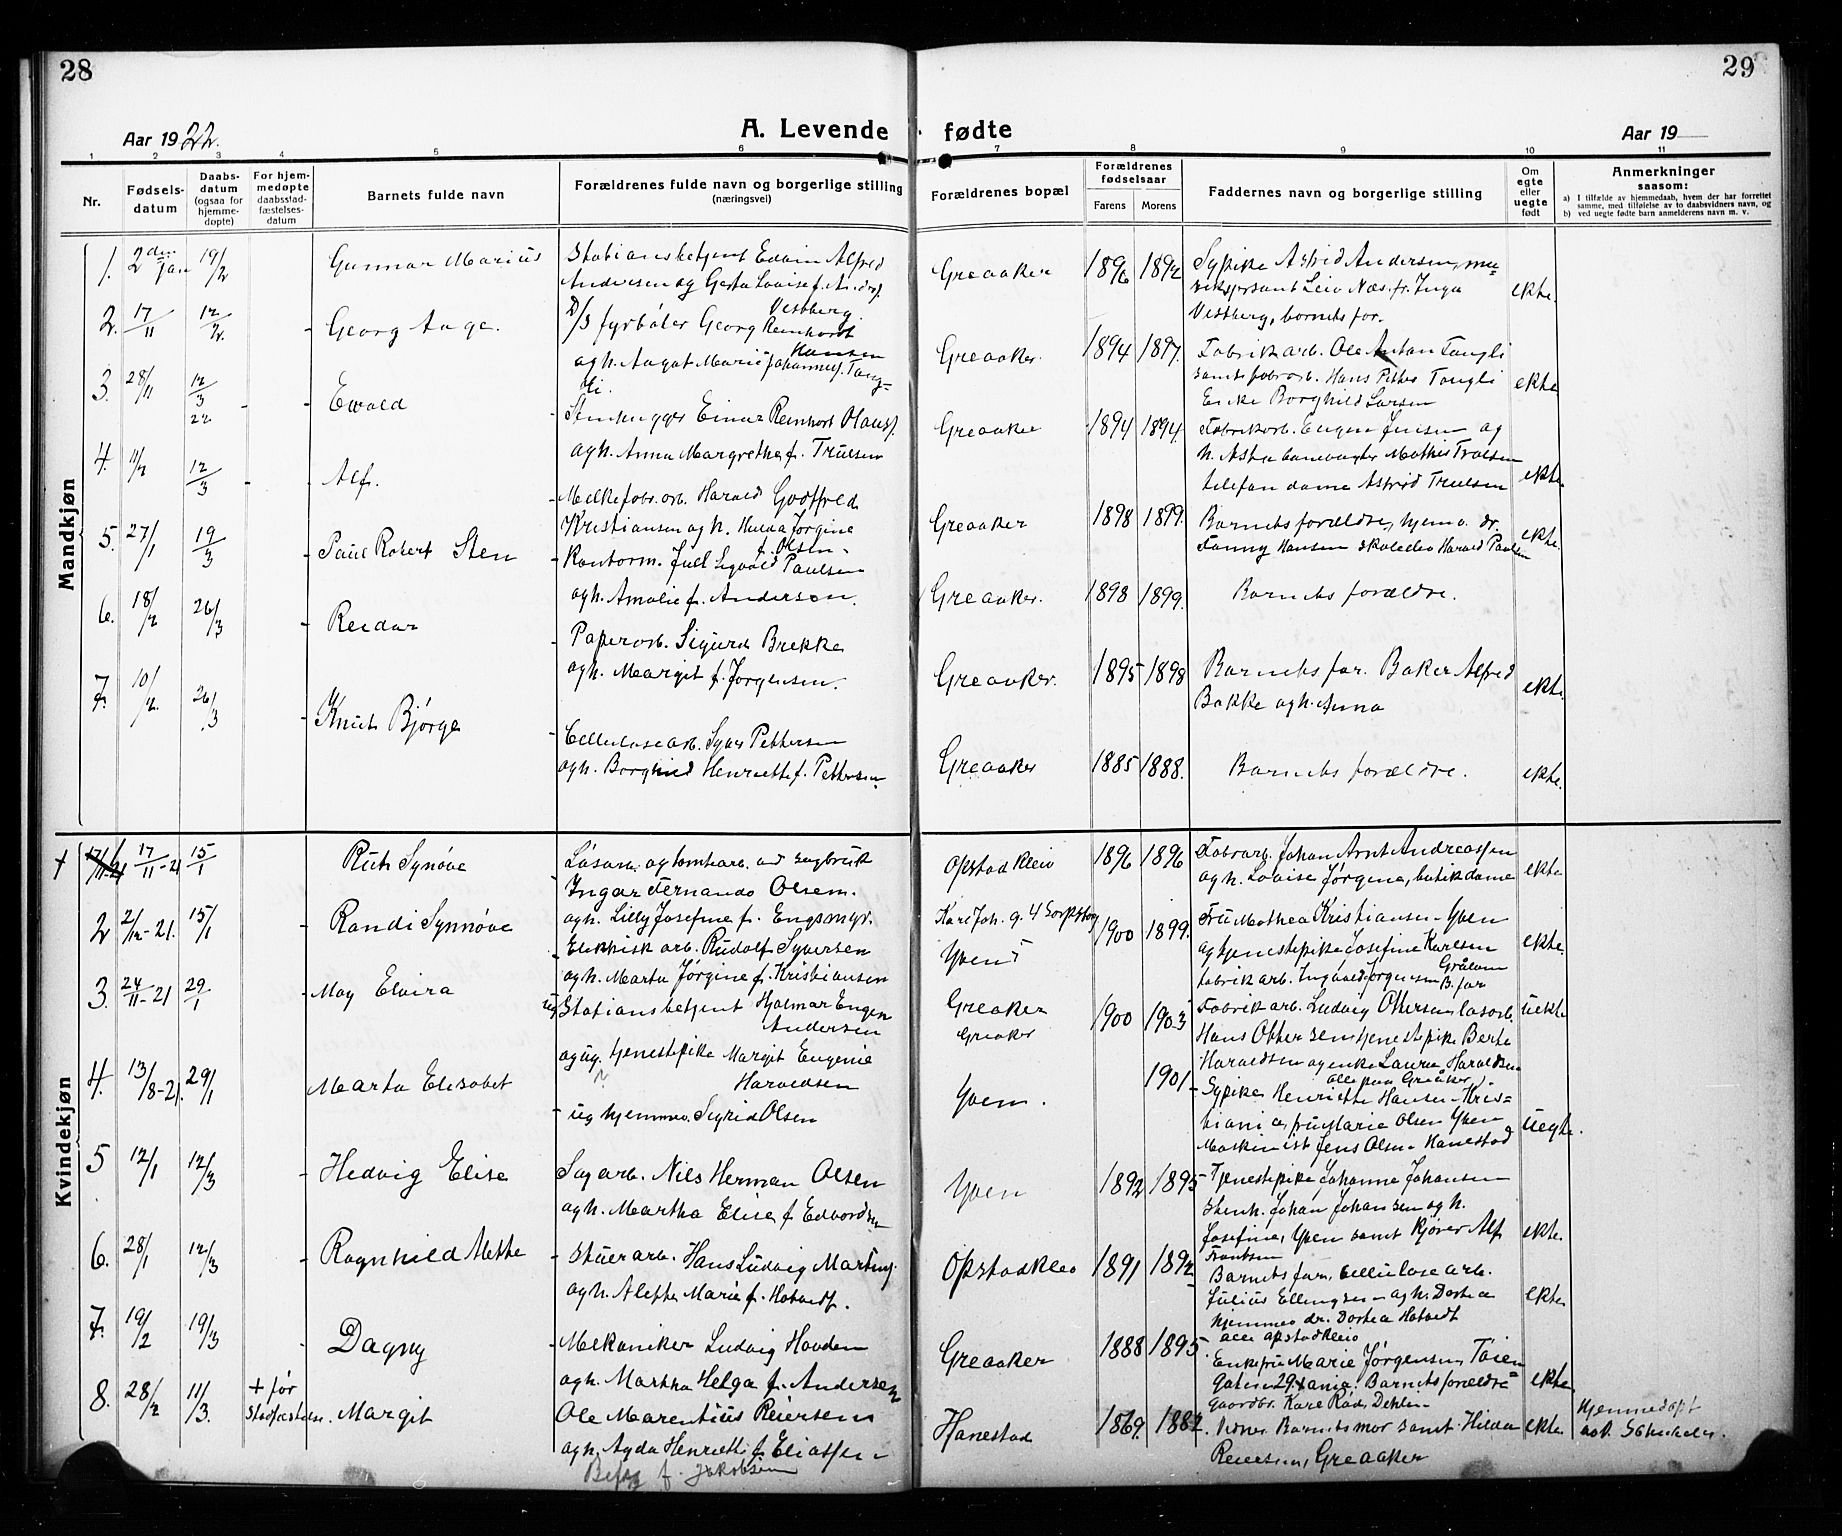 28
29
Aar 1922.
A. Levende fødte
Aar 19
1 2 3 4 5 6 7 8 9 10 11
Nr.
Fødsels-
datum
Daabs-
datum
(ogsaa for
hjemme-
døpte)
For hjem-
medøpte
daabsstad-
fæstelses-
datum
Barnets fulde navn
Forældrenes fulde navn og borgerlige stilling
(næringsvei)
Forældrenes bopæl
Forældrenes
fødselsaar
Farens
Morens
Faddernes navn og borgerlige stilling
Om
egte
eller
uegte
født
Anmerkninger
saasom:
a) I tilfælde av hjemmedaab, hvem der har forrettet
samme, med tilføielse av to daabsvidners navn, og
b) ved uegte fødte barn anmelderens navn m. v.
Mandkjøn
1. 2den Jan 19/2 Gunnar Marius
Stationsbetjent Edvin Alfred
Andersen og Gerda Lovise f.
Vestberg.
Greaaker 1896 1892
Sypike Astrid Andersen, mu-
Næs. fr. Inga
Vestberg, barnets far.
ekte.
2. 17/11 12/2. - Georg Aage.
D/S fyrbøter Georg Reinhardt
Hansen
og h. Aagot Marie Johannes f. Tang-
li.
Greaaker. 1894 1897.
Fabrikarb. Ole Anton Tangli
samt fabrarb. Hans Petter Tangli
Enke Borghild Larsen
ekte
3. 28/11 12/3 22 - - Ewald
Stenhugger Einar Reinhart Olaus f.
og h. Anna Margrethe f. Truelsen
Greaaker 1894 1894.
Fabrikarb. Eugen Jensen og
h. Asta banevogter Mathis Truelsen
telefondame Astrid Truelsen
ekte.
4. 11/2 12/3 - - Alf.
- Melkefabr. arb. Harald Godtfred
Kristiansen og h. Hulda Jørgine
f. Olsen.
Greaaker 1898 1899.
Barnets forældre, hjemv. dr.
Fanny Hansen skoleelev Harald Paulsen
ekte.
5. 27/1 19/3 - Paul Robert Sten
- Kontorm. Juel Sigvald Paulsen
og h. Amalie f. Andersen.
Greaaker. 1898 1899.
Barnets forældre.
6. 18/2 26/3 - Reidar
- Paperarb. Sigurd Brekke
og h. Margit f. Jørgensen.
Greaaker. 1895 1898
Barnets far. Baker Alfred
Bakke og h. Anna
ekte.
7. 10/2. 26/3 - Knut Bjørge
Cellulosearb. Syver Pettersen
og h. Borghild Henriette f. Pettersen.
Greaaker 1885 1888.
Barnets forældre.
ekte.
Kvindekjøn
+ 17/11-21 15/1 Rut Synøve
Løsarb. og tomtearb. ved sagbruk
Ingar Fernando Olsen.
og h. Lilly Josefine f. Engsmyr.
Opstadkleiv 1896 1896
Fabrarb. Johan Arnt Andreassen
og h. Lovise Jørgine, butikdame
ekte
2 2/12-21. 15/1 - Randi Synnøve
- Elektrisk arb. Rudolf Syversen
og h. Marta Jørgine f. Kristiansen
Karl Joh. g. 4 Sarpsborg
Yven 1900 1899.
Fru Mathea Kristiansen - Yven
og tjenestepike Josefine Karlsen
Grålum
fabrikarb. Ingvald Jørgensen B. far
ekte.
3. 24/11-21 29/1 - May Elvira
ug Stationsbetjent Hjalmar Eugen
Andersen
og ug. tjenestepike Margit Eugenie
Haraldsen
Greaaker
Greaaker
1900 1903
Fabrikarb. Ludvig Ottersen løsarb.
Hans Ottersen tjenestepike Berte
Haraldsen og enke Laura Haraldsen
alle paa Greåker.
uekte
4. 13/8-21. 29/1 Marta Elisabet
- ug hjemmev. Sigrid Olsen
Yven. 1901
- Sypike Henriette Hansen - Kris-
tiania, fru Marie Olsen Yven
Maskinist Jens Olsen Hanestad
uegte.
5 12/1 12/3 - Hedvig Elise
Sagarb. Nils Herman Olsen
og h. Martha Elise f. Edvardsen
Yven 1892 1895
- Tjenestepike Johanne Johansen
Stenh. Johan Johansen og h.
Josefine, Yven samt kjører Alf
Frantsen
ekte.
6. 28/1 12/3 - Ragnhild Alette
- Stuerarb. Hans Ludvig Martins.
og h. Alette Marie f. Hatvedt.
Opstadkleiv 1891 1892
Barnets far, cellulosearb.
Julius Ellingsen og h. Dortea
hjemmev. dr. Dortea Hatvedt
alle opstadkleiv
ekte
7. 19/2 19/3 - Dagny
- Mekaniker Ludvig Hovden
og h. Martha Helga f. Andersen
Greaaker 1888 1895.
Enkefru Marie Jørgensen, Tøien
gaten 29. Xania. Barnets forældre
Gaardbr. Kare Rød, Dehlin
ekte.
8. 28/2 11/3. + før
Stadfæstelsen. Margit
Ole Marentius Reiersen
og h. Agda Henriette f. Eliassen
f. Jakobsen
Hanestad 1869. 1882.
Vidner Barnets mor samt Hilda
Reiersen, Greaaker
ekte.
Hjemmedøpt